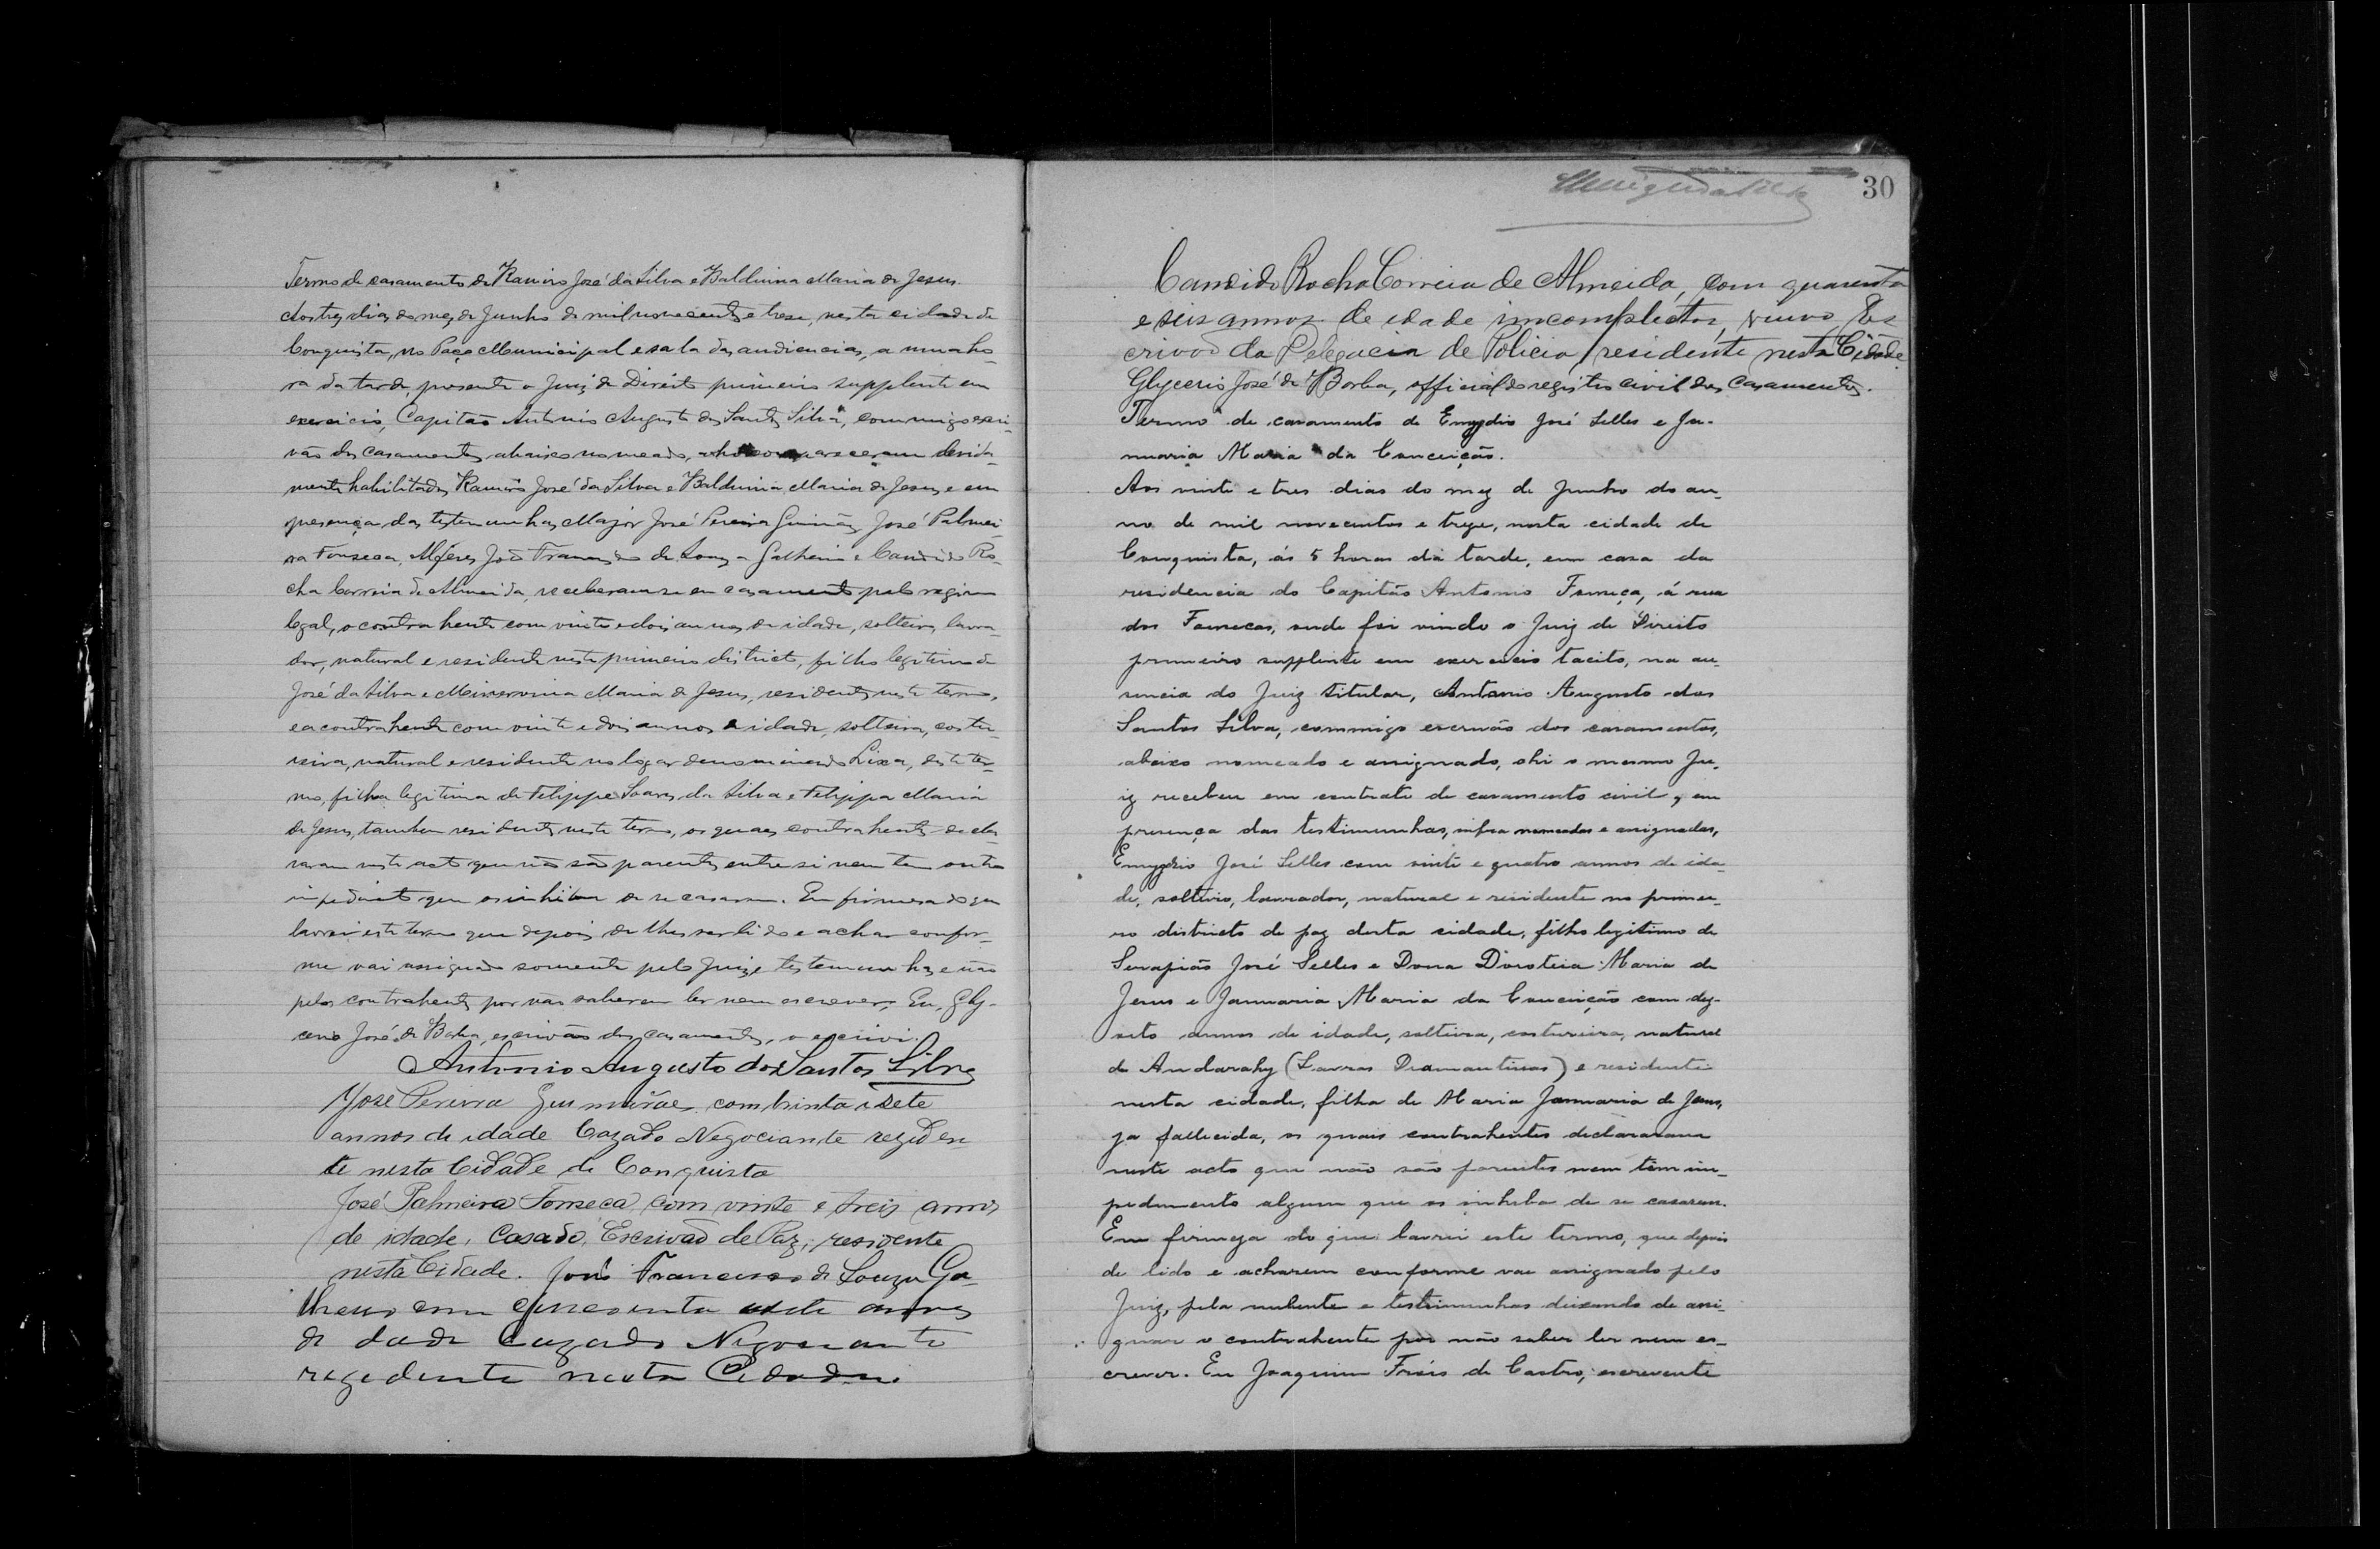 Termo de casamento de Ramiro José da Silva e Balduina Maria de Jesus.
Aos tres dias do mez de Junho de mil novecentos e treze, nesta cidade de
Conquista, no Paço Municipal e sala das audiencias, a uma ho-
ra da tarde, presente o Juiz de Direito primeiro supplente em
exercicio, Capitão Antonio Augusto dos Santos Silva, commigo escri-
vão dos casamentos abaixo nomeado, ahi compareceram devida-
mente habilitados Ramiro José da Silva e Balduina Maria de Jesus, e em
presença das testemunhas Major José Pereira Guimarães, José Palmei-
ra Fonseca, Alferes João Francisco de Souza Galheiro e Candido Ro-
cha Correia de Almeida, receberam-se em casamento pelo regimen
legal, o contrahente com vinte e dois annos de idade, solteiro, lavra-
dor, natural e residente neste primeiro districto, filho legitimo de
José da Silva e Minervina Maria de Jesus, residentes neste termo,
e a contrahente com vinte e dois annos de idade, solteira, costu-
reira, natural e residente no logar denominado Lixa, deste ter-
mo, filha legitima de Felippe Soares da Silva e Felippa Maria
de Jesus, tambem residentes neste termo, os quaes contrahentes decla-
raram neste acto que não são parentes entre si nem tem outro
impedimento que os inhiba de se casarem. Em firmesa do que
lavrei este termo que depois de lhes ser lido e achar confor-
me vai assignado somente pelo Juiz e testemunhas e não
pelos contrahentes por não saberem ler nem escrever. Eu, Gly-
cerio José de Borba, escrivão dos casamentos, o escrivi.
Antonio Augusto dos Santos Silva
José Pereira Guimarães com trinta e sete
annos de idade Cazado Negociante reziden
te nesta Cidade de Conquista
José Palmeira Fonseca, com vinte e treis annos
de idade, Casado, Escrivaõ de Paz, residente
nesta Cidade. João Francisco de Souza Ga-
lheiro com cincoenta e sete annos
de dade Cazado Negociante
rezedente nesta Cidade.
30
Candido Rocha Correia de Almeida, com quarenta
e seis annos de idade incomplectos, viuvo, Es
crivaõ da Delegacia de Policia, residente nesta Cidade
Glycerio José de Borba, official do registro civil dos casamentos.
Termo de casamento de Emygdio José Selles e Ja-
nuaria Maria da Conceição.
Aos vinte e tres dias do mez de Junho do an-
no de mil novecentos e treze, nesta cidade de
Conquista, ás 5 horas da tarde, em casa da
residencia do Capitão Antonio Fonseca, á rua
dos Fonsecas, onde foi vindo o Juiz de Direito
primeiro supplente em exercicio tacito, na au-
sencia do Juiz titular, Antonio Augusto dos
Santos Silva, commigo escrivão dos casamentos,
abaixo nomeado e assignado, ahi o mesmo Ju-
iz recebeu em contrato de casamento civil, em
presença das testimunhas, infra nomeadas e assignadas,
Emygdio José Selles com vinte e quatro annos de ida-
de, solteiro, lavrador, natural e residente no primei-
ro districto de paz desta cidade, filho legitimo de
Serapião José Selles e Dona Doroteia Maria de
Jesus e Januaria Maria da Conceição com dez-
oito annos de idade, solteira, costureira, natural
de Andarahy (Lavras Diamantinas) e residente
nesta cidade, filha de Maria Januaria de Jesus,
ja fallecida, os quais contrahentes declararam
neste acto que não são parentes nem têm im-
pedimento algum que os inhiba de se casarem.
Em firmeza do que lavrei este termo, que depois
de lido e acharem conforme vae assignado pelo
Juiz, pela nubente e testimunhas deixando de assi-
gnar o contrahente por não saber ler nem es-
crever. Eu Joaquim Fróis de Castro, escrevente